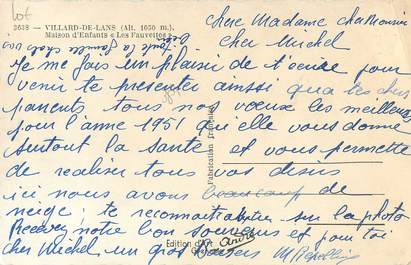 lot
2638 - VILLARD-DE-LANS (Alt. 1050 m.)
Maison d'Enfants « Les Fauvettes »
chère Madame cher Monsieur
cher Michel
Je me fais un plaisir de t'ecrire pour
venir te presenter ainssi qua tes chers
parents tous nos vœux les meilleurs
pour l'anne 1951 qu'elle vous donne
surtout la santé et vous permette
de realiser tous vos désirs
ici nous avons beaucoup de
neige; te reconnaitras tu sur la photo
Recevez notre bon souvenir et pour toi
cher Michel un gros baisers
Fabrication
Edition d'Art André